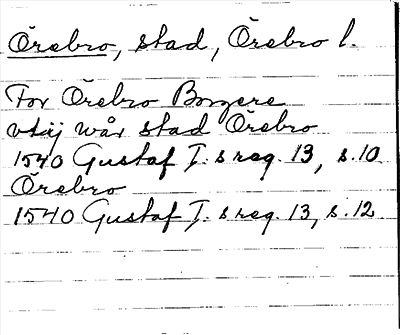 Örebro, stad, Örebro l.
For Örebro Borgere
vtäj wår stad Örebro
1540 Gustaf I:s reg. 13, s. 10
Örebro
1540 Gustaf I:s reg. 13, s. 12